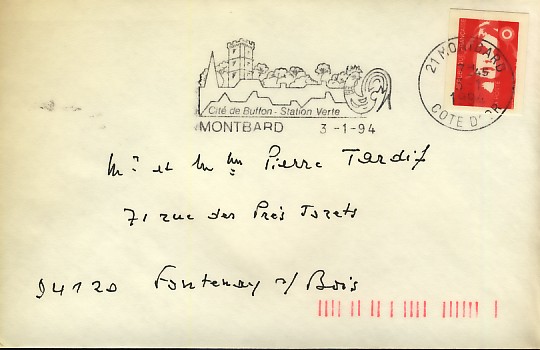 21 MONTBARD
COTE D'OR
Cité de Buffon - Station Verte
MONTBARD 3-1-94
Mr et Mme Pierre Tardif
71 rue des Prés
94120 Fontenay s/ Bois